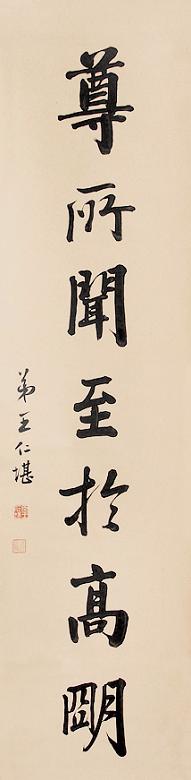 尊所聞至於高明
弟王仁堪